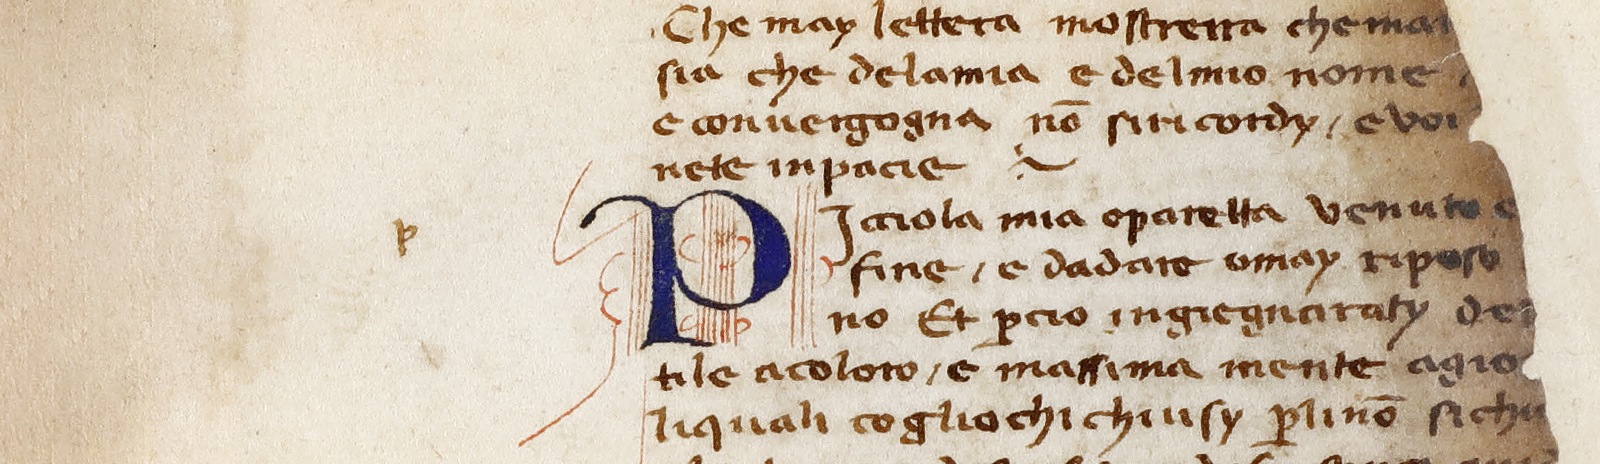 Che may lettera mostrerra che mai
sia che delamia e delmio nome
e conuergogna nō siricordy / e voi
nete inpacie
p
PIcciola mia operetta venuto e
fine / e dadare omay riposo
no Et ꝑcio ingiegnaraty de
tile acoloro / e massima mente agio
liquali cogliochi chiusy ꝑlinō sichu